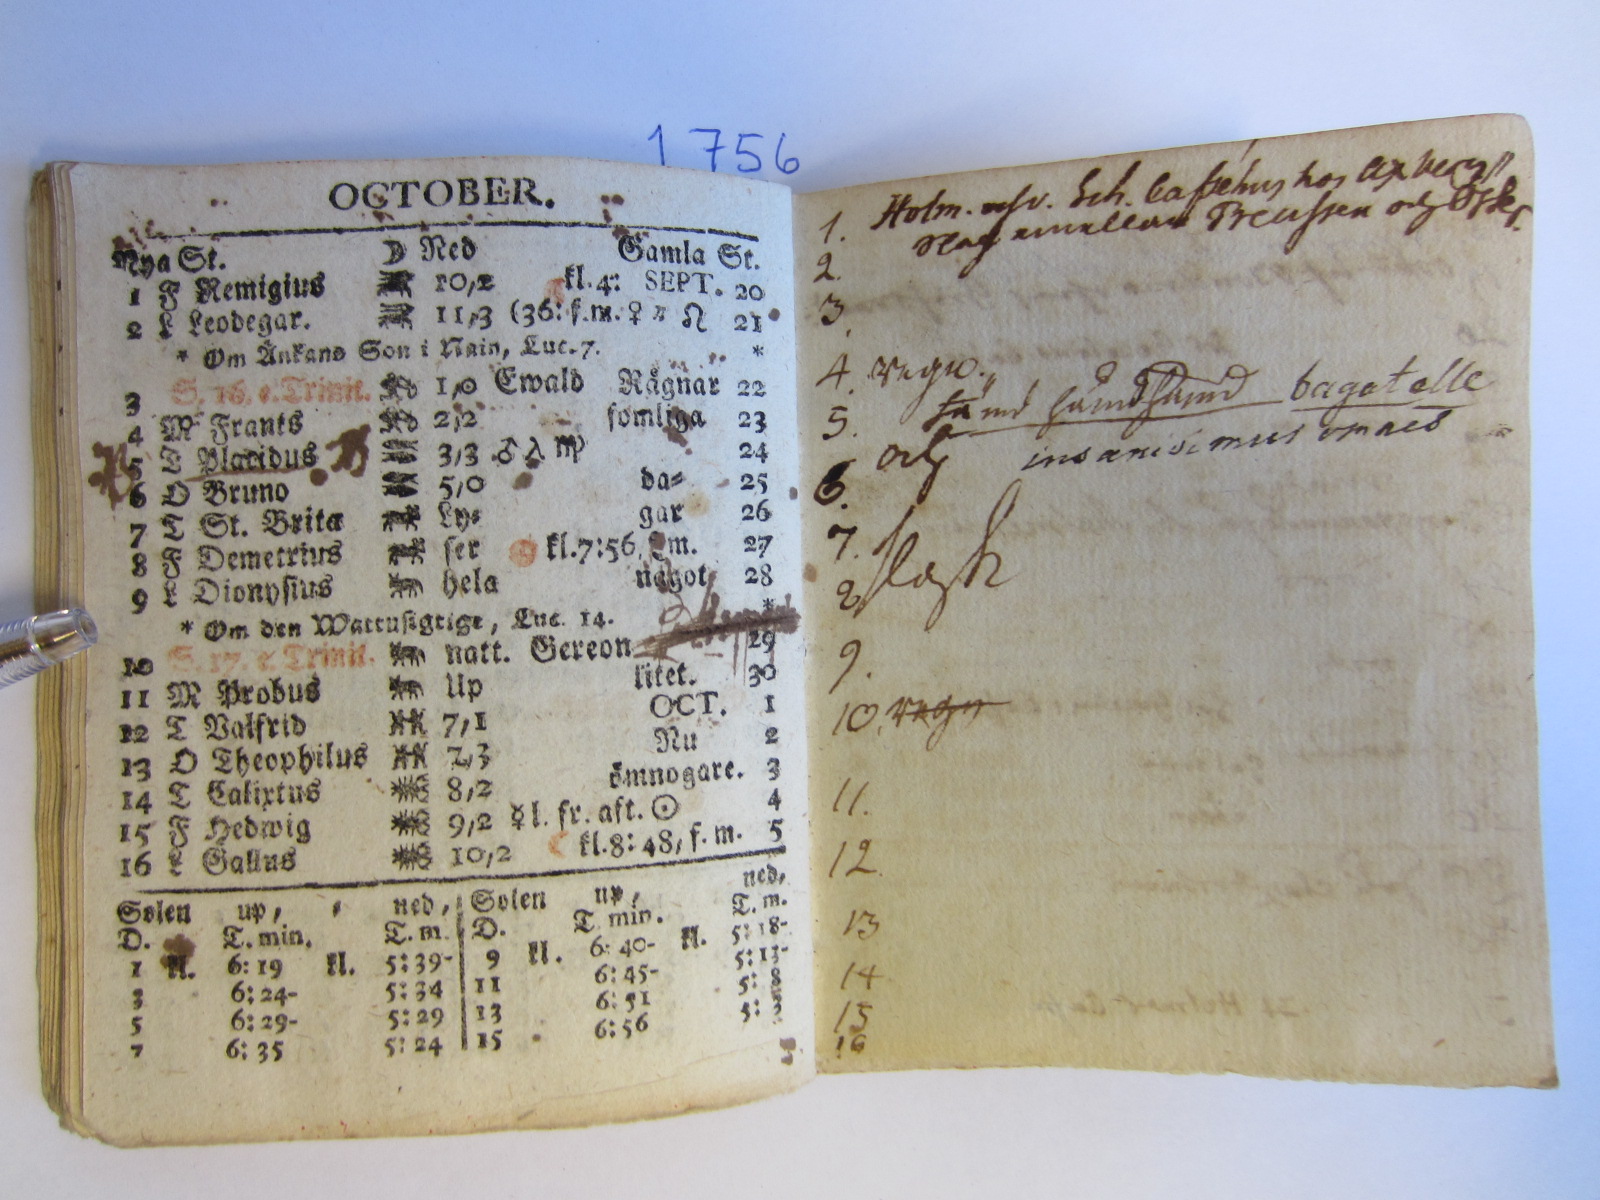 1756
OCTOBER.
Nya St. ☽ Ned Gamla St.
1 F Remigius 10,2 kl.4: SEPT. 20
2 L Leodegar. 11,3 (36: f.m. ♀ ☊ 21
* Om Änkans Son i Nain, Luc. 7. *
3 S. 16. e. Trinit. 1,0 Ewald Rägnar 22
4 M Frants 2,2 somliga 23
5 T Placidus 3,3 ♂ ♍ 24
6 O Bruno 5,0 da= 25
7 T St. Brita Ly= gar 26
8 F Demetrius ser kl.7:56, m. 27
9 L Dionysius hela något 28
* Om den Wattusigtige, Luc. 14. *
10 S. 17. e. Trinit. natt. Gereon 29
11 M Probus Up litet. 30
12 T Valfrid 7,1 OCT. 1
13 O Theophilus 7,3 Nu 2
14 T Calixtus 8,2 ömnogare. 3
15 F Hedwig 9,2 ☿ l. fr. aft. ☉ 4
16 L Gallus 10,2 kl.8:48, f.m. 5
Solen up, ned, Solen up, ned,
D. T. min. T. m. D. T. min. T. m.
1 kl. 6:19 kl. 5:39- 9 kl. 6:40- kl. 5:18-
3 6:24- 5:34 11 6:45- 5:13-
5 6:29- 5:29 13 6:51 5:8
7 6:35 5:24 15 6:56 5:3
1. Holm. Sch. hos
2. slag emellan Preussen och
3.
4. regn.
5. bagatelle
och insanisimus omnes
6.
7. slask
8
9.
10. regn
11.
12.
13
14
15
16